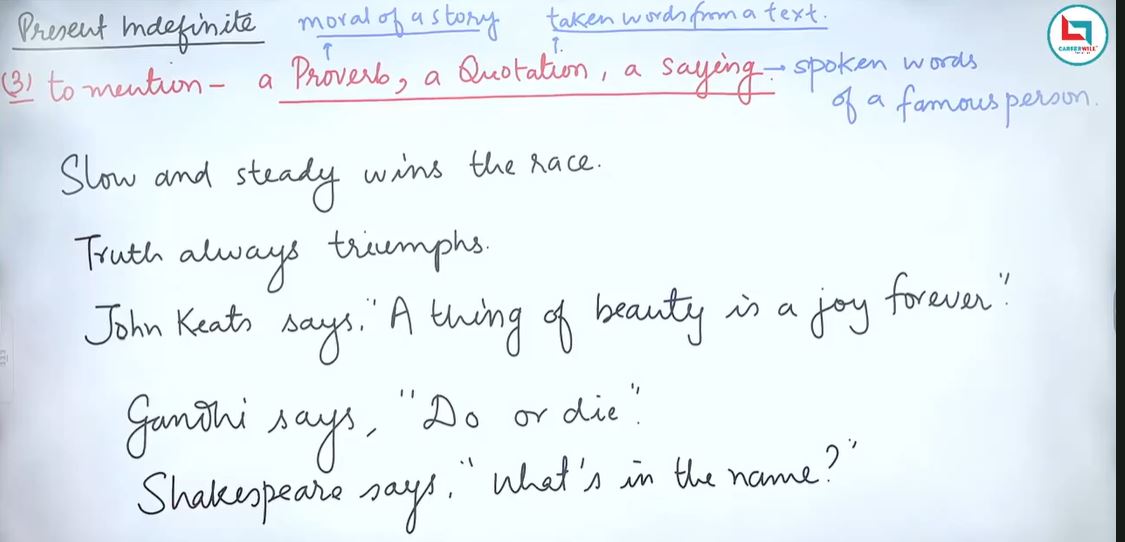 Present Indefinite moral of a story taken words from a text.
CAREERWILL
(3) to mention - a Proverb, a Quotation, a saying → spoken words
of a famous person.
Slow and steady wins the race.
Truth always triumphs.
John Keats says, "A thing of beauty is a joy forever".
Gandhi says, "Do or die".
Shakespeare says, "What's in the name?"